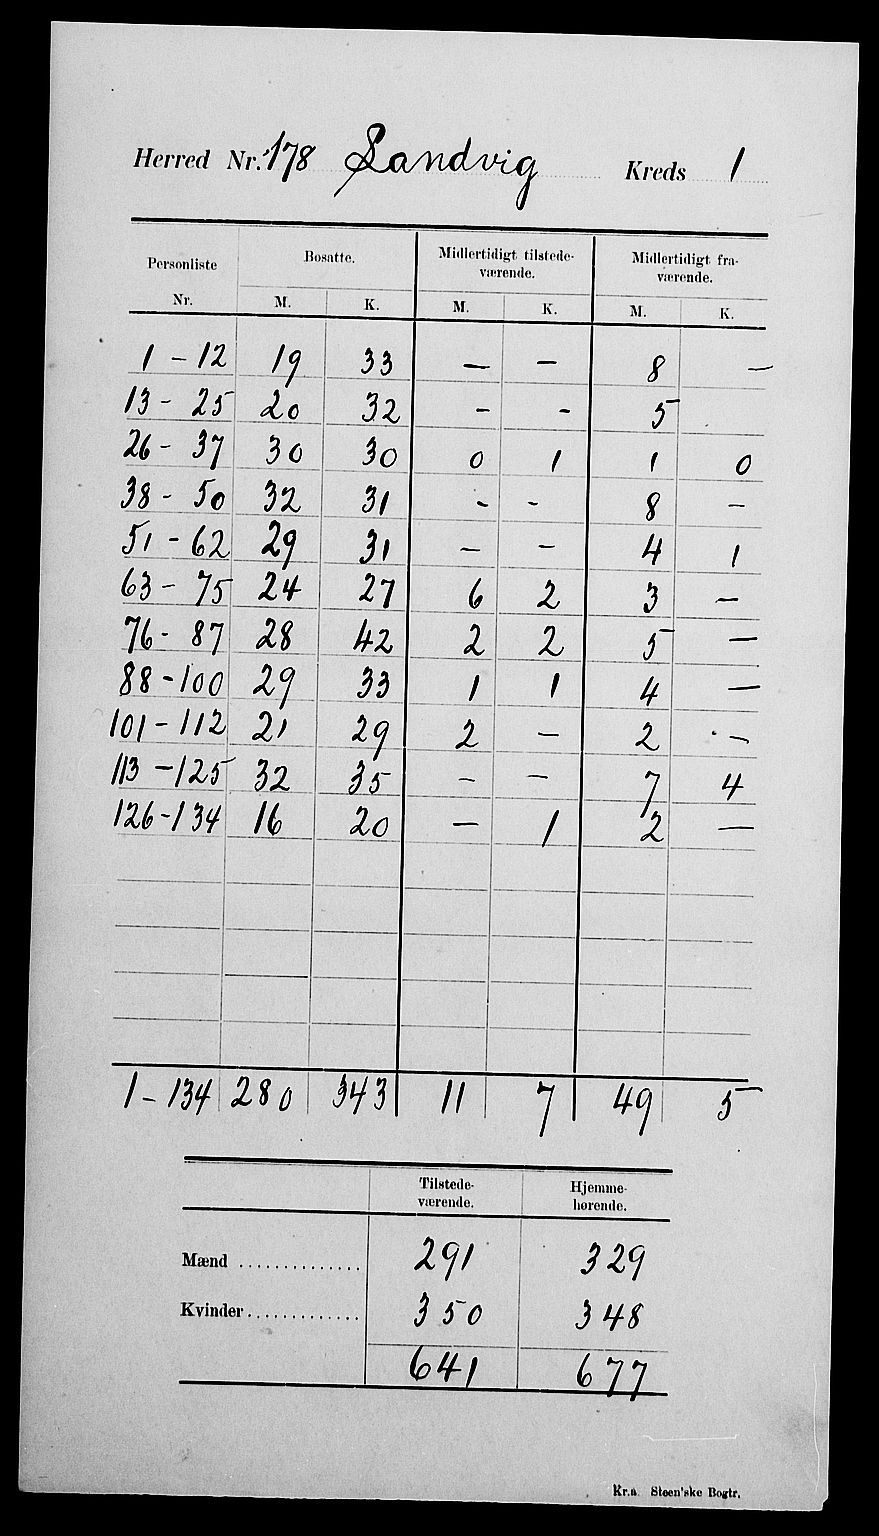 Herred Nr. 178 Sandvig Kreds 1
Personliste Nr. Bosatte. Midlertidigt tilstede-værende. Midlertidigt fra-værende.
M. K. M. K. M. K.
1 - 12 19 33 — - 8 —
13 - 25 20 32 - - 5
26 - 37 30 30 0 1 1 0
38 - 50 32 31 - - 8 -
51 - 62 29 31 - - 4 1
63 - 75 24 27 6 2 3 -
76 - 87 28 42 2 2 5 —
88 - 100 29 33 1 1 4 —
101 - 112 21 29 2 - 2 -
113 - 125 32 35 - - 7 4
126 - 134 16 20 — 1 2 —
1 - 134 280 343 11 7 49 5
Tilstede-værende. Hjemme-hørende.
Mænd .............. 291 329
Kvinder ............. 350 348
641 677
Kr.a Steen'ske Bogtr.